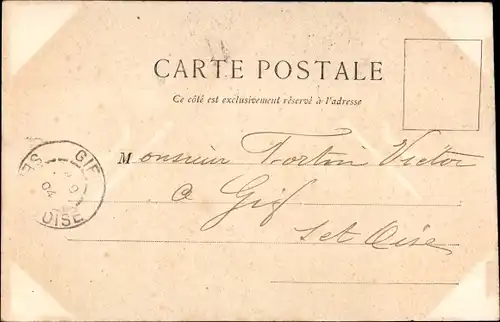 CARTE POSTALE
Ce côté est exclusivement réservé à l'adresse
Monsieur Fortin Victor
a Gif
S et Oise
GIF
SE
04
OISE